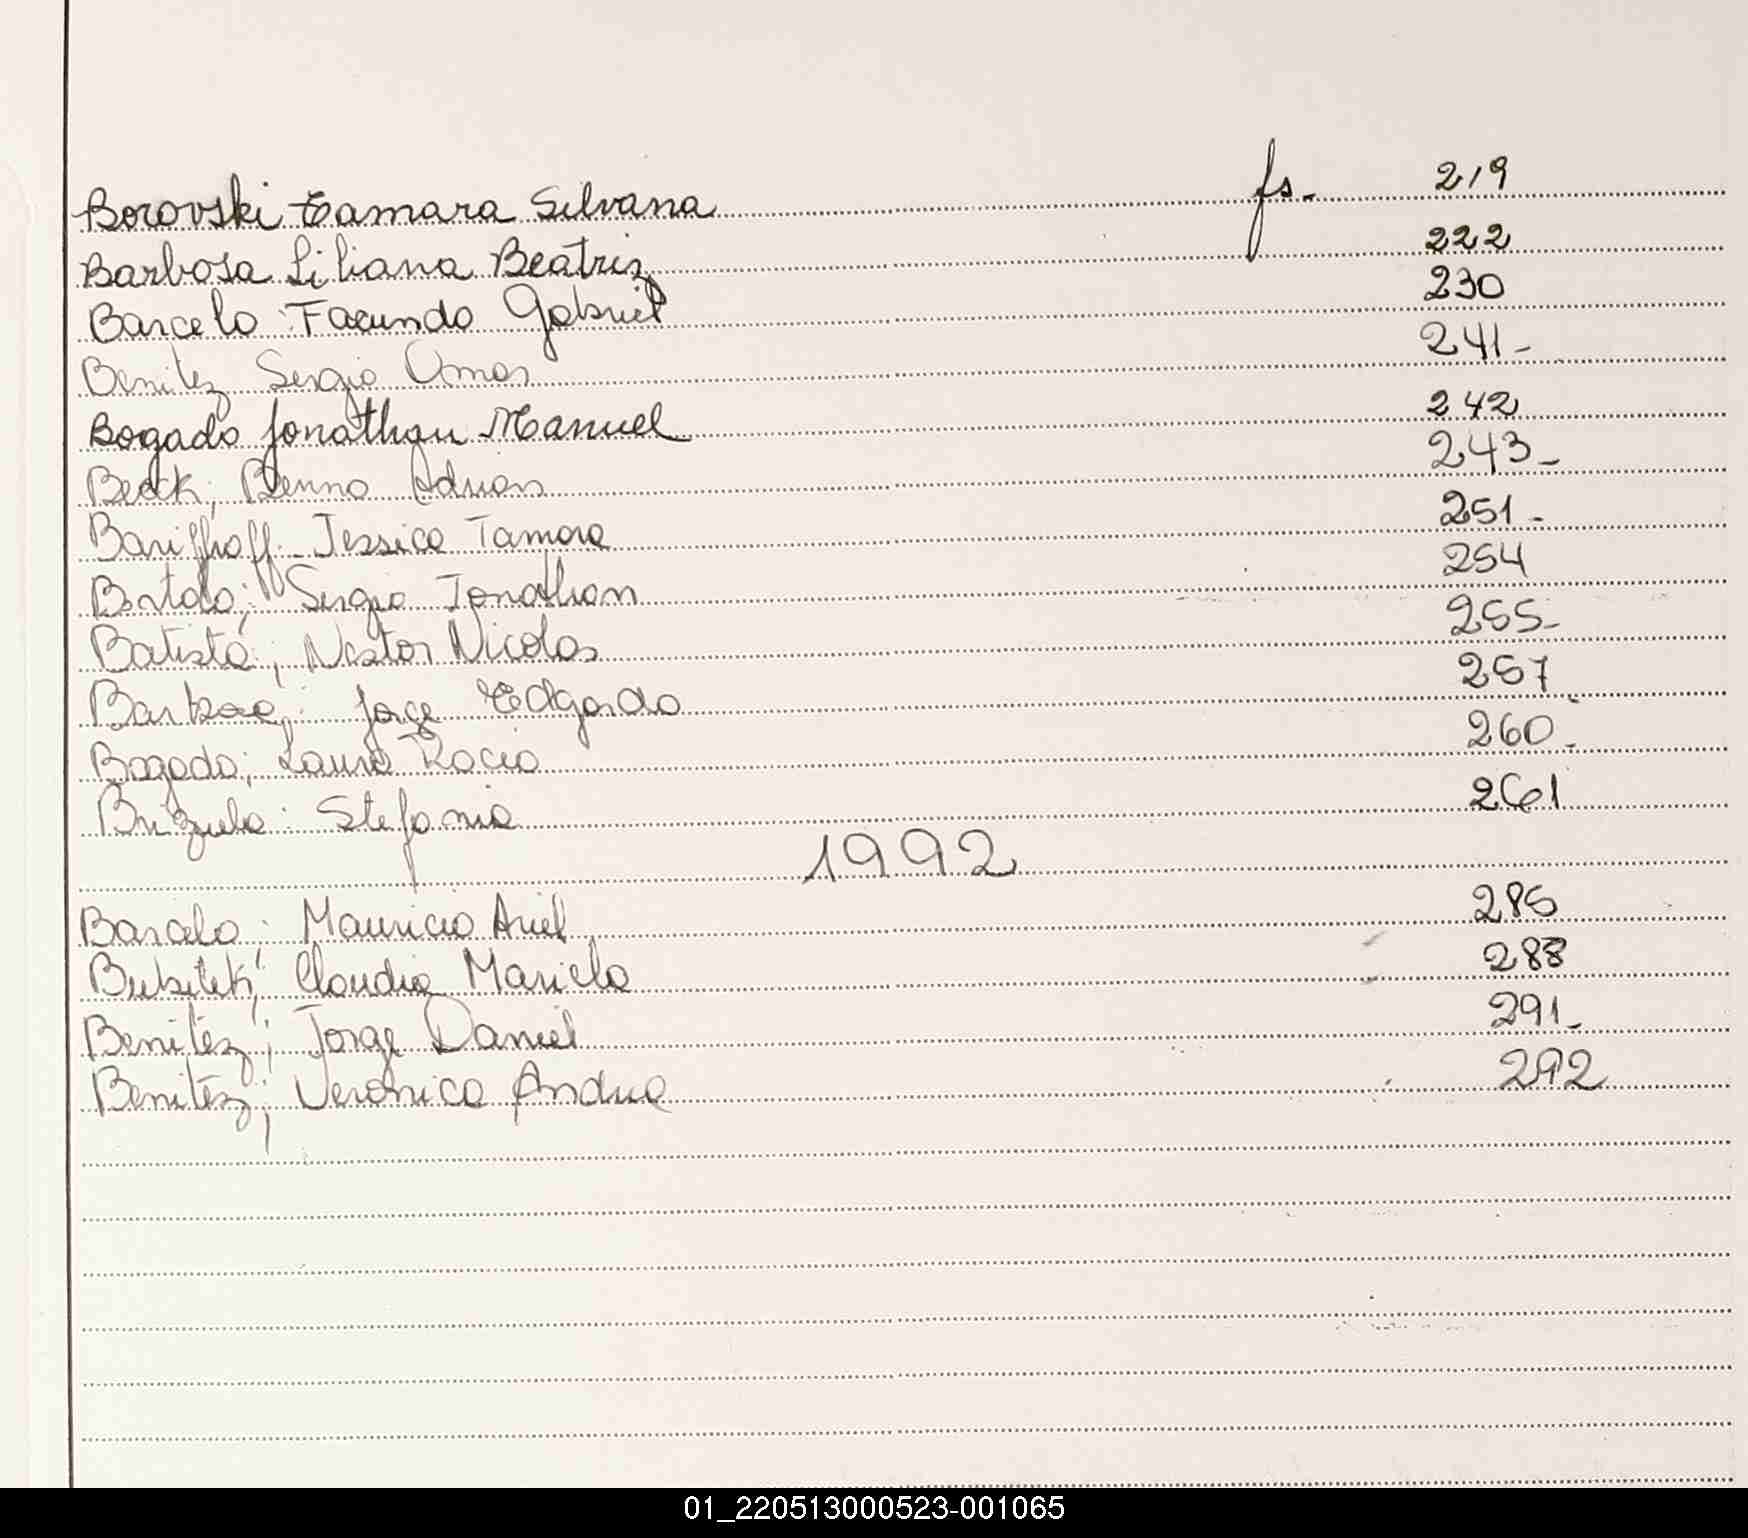 Borovski Tamara Silvana fs. 219
Barbosa Liliana Beatriz 222
Barcelo Facundo Gabriel 230
Benitez Sergio Omar 241-
Bogado Jonathan Manuel 242
Beck, Benno Adrian 243-
Jessica Tamara 251-
Sergio Jonathan 254
Batista, Nestor Nicolas 255-
Jorge Edgardo 257
Bogado; Laura Rocio 260.
Brizuela: Stefania 261
1992
Baralo; Mauricio Ariel 285
Claudia Mariela 288
Benitez; Jorge Daniel 291-
Benitez; Veronica Andrea 292
01_220513000523-001065